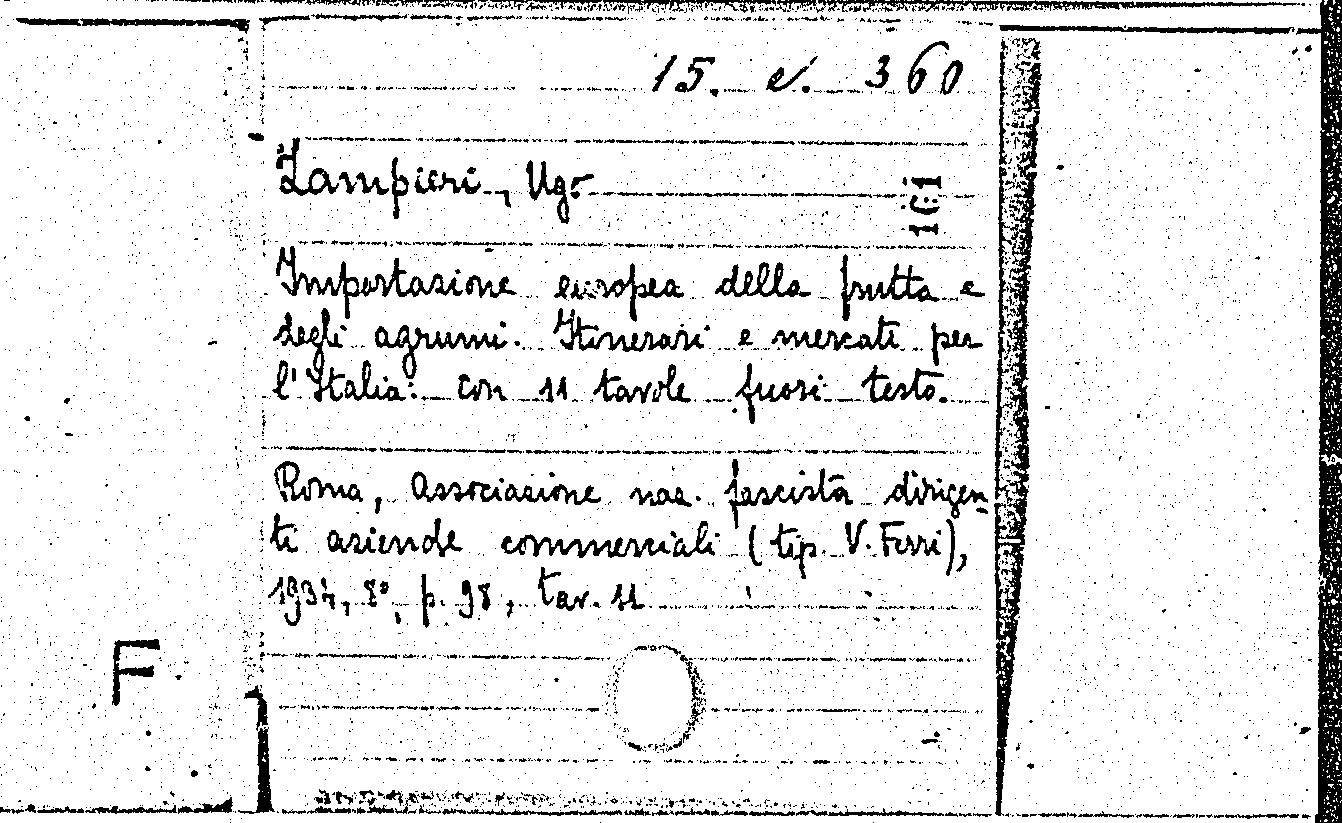 15. e. 360
Zampieri, Ugo
Importazione europea della frutta e
degli agrumi. Itinerari e mercati per
l'Italia: con 11 tavole fuori testo.
Roma, Associazione naz. fascista dirigen-
ti aziende commerciali (tip. V. Ferri),
1934, 8°, p. 98, tav. 11
F